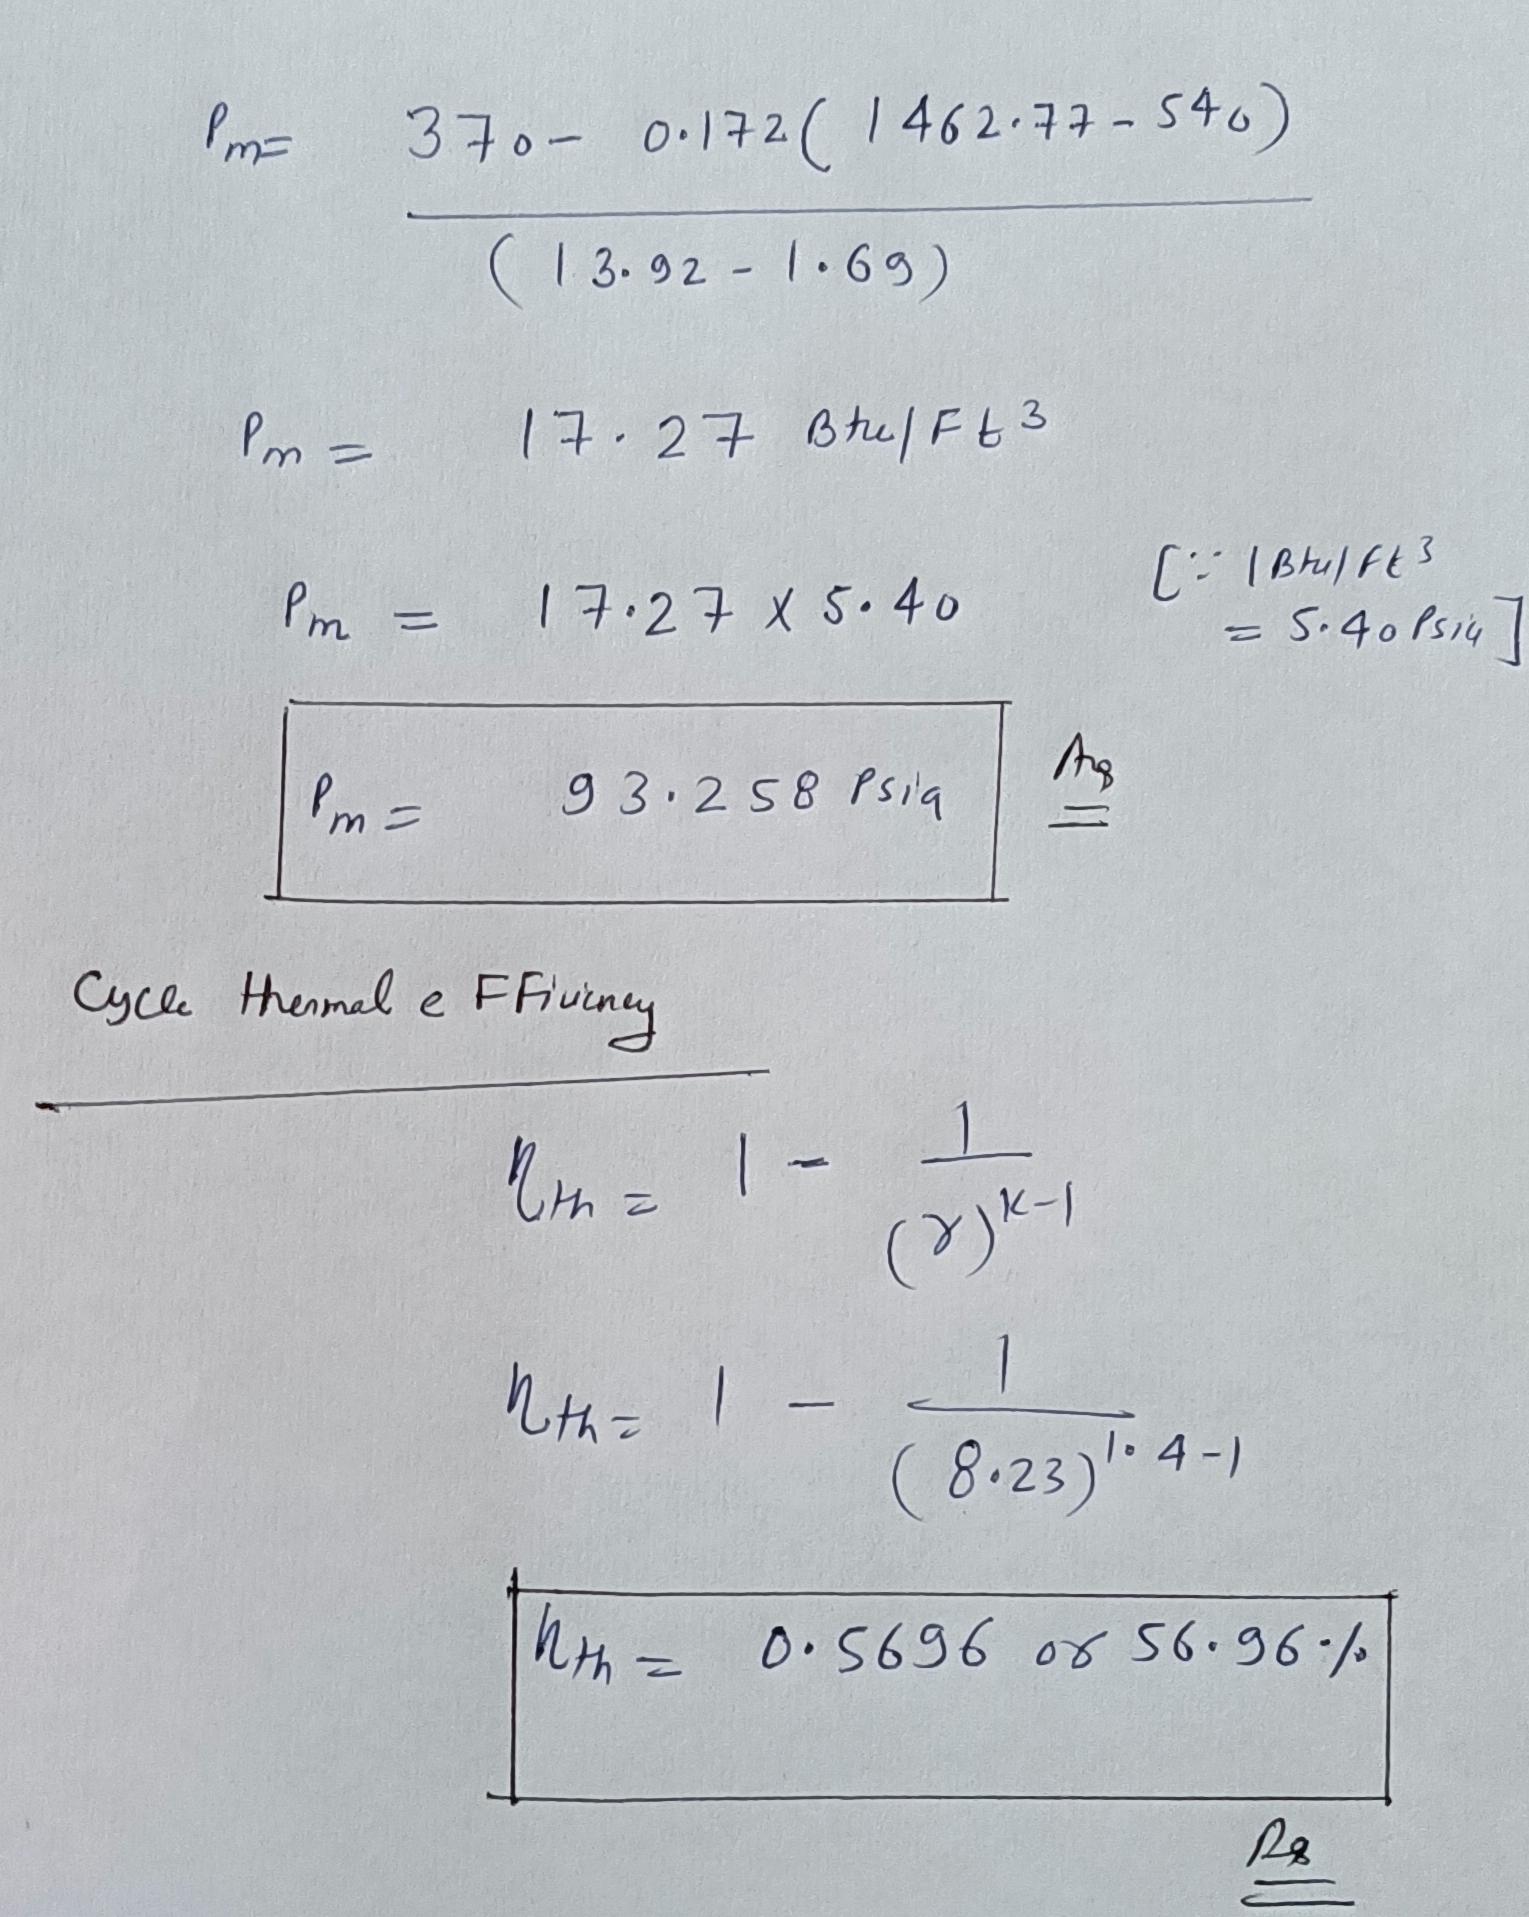 Pm= 370 - 0.172( 1462.77 - 540)
(13.92 - 1.69)
Pm = 17.27 Btu/Ft3
Pm = 17.27 x 5.40 [∵ 1Btu/Ft3
= 5.40 Psia]
Pm = 93.258 Psia Ans
Cycle thermal eFFiciency
ηth = 1 - 1
(r)^k-1
ηth = 1 - 1
(8.23)^1.4-1
ηth = 0.5696 or 56.96%